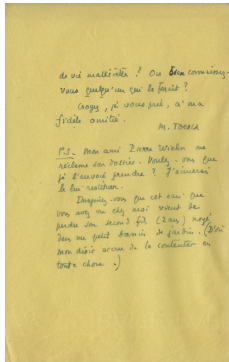 de vie matérielle ? Ou bien connaissez-
vous quelqu'un qui le ferait ?
Croyez, je vous prie, à ma
fidèle amitié.
M.
P.S. Mon ami Pierre me
réclame son dossier. Voulez-vous que
je l'envoie prendre ? J'aimerais
le lui restituer.
-vous que cet ami que
vous avez vu chez moi vient de
perdre son second fils (2 ans) noyé
dans un petit bassin de jardin. (D'où
mon désir accru de le contenter en
toute chose.)